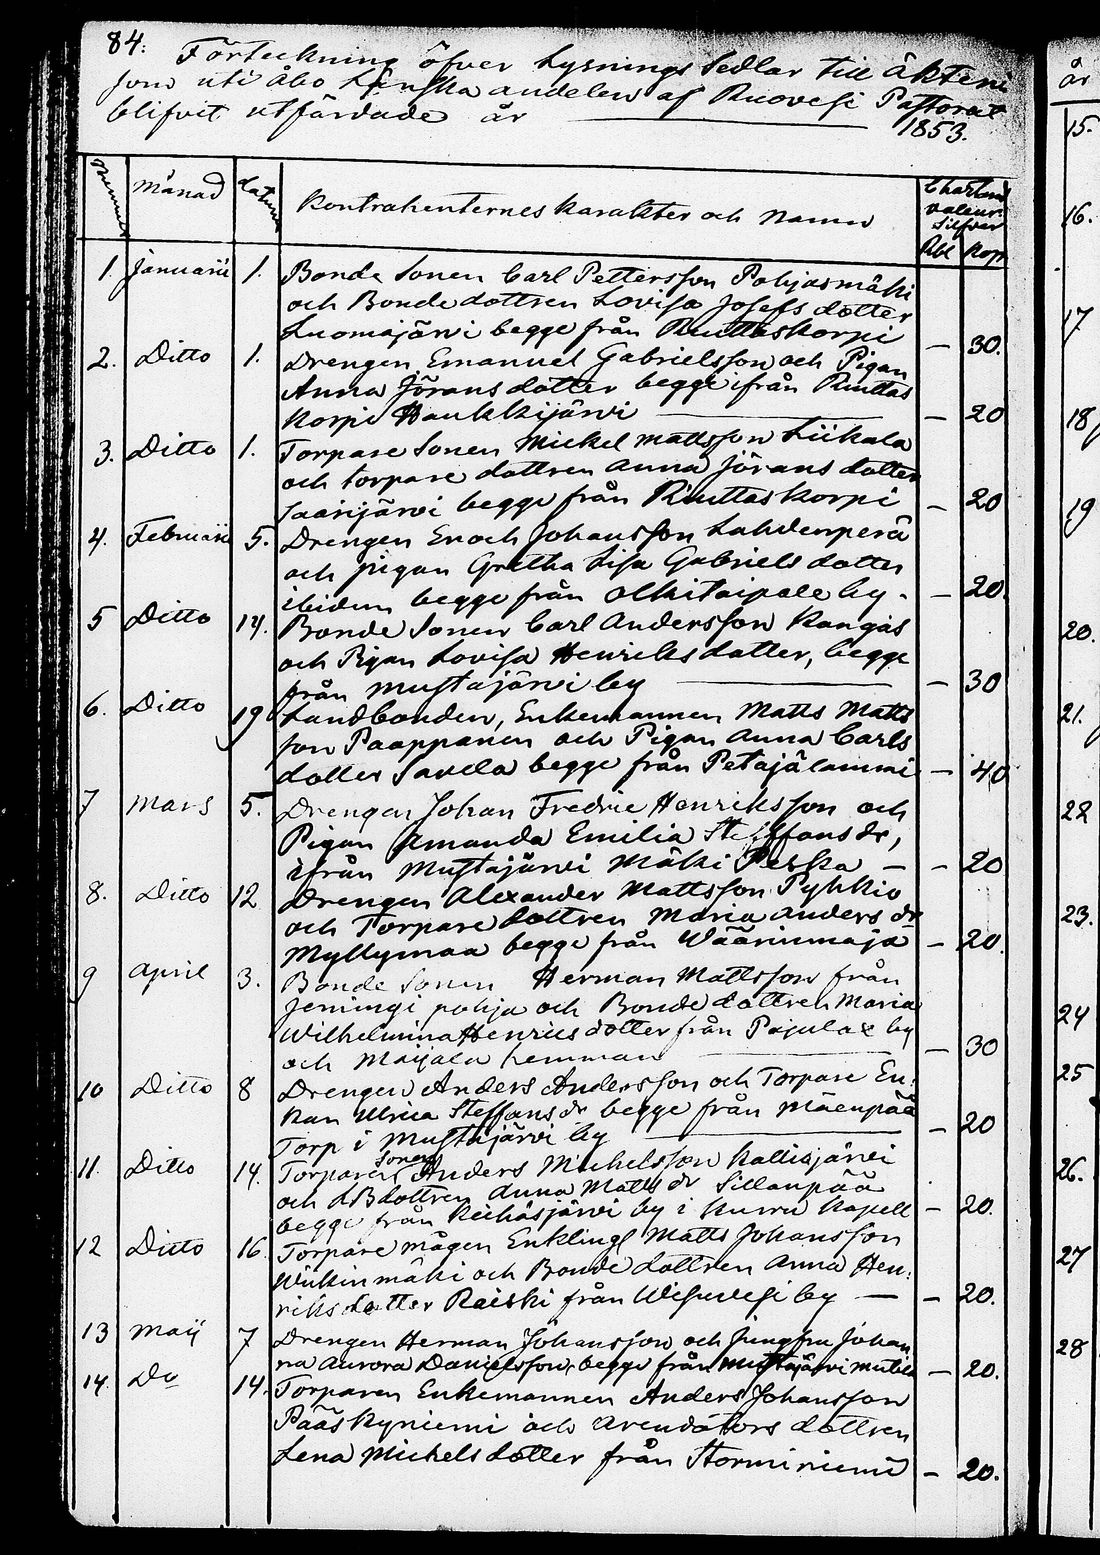 84.
Förteckning öfver Lysnings Sedlar till äkten
som uti Åbo Länska andelen af Ruovesi Pastorat
blifvit utfärdade år 1853.
Nummer månad datum Kontrahenternes karakter och namn Charta valeur Silfver
Rbl Kop
1. Januarii 1. Bonde Sonen Carl Pettersson Pohjasmäki
och Bonde dottren Lovisa Josefs dotter
Luomajärvi begge från Ruuttaskorpi — 30.
2. Ditto 1. Drengen Emanuel Gabrielsson och Pigan
Anna Jörans dotter begge ifrån Ruuttas
korpi Haukkijärvi — 20
3. Ditto 1. Torpare Sonen Mickel Mattsson Liikala
och torpare dottren Anna Jörans dotter
Saarijärvi begge från Ruuttaskorpi — 20
4. Februarii 5. Drengen Enoch Johansson Lahdenperä
och pigan Gretha Lisa Gabriels dotter
ibidem begge från Olkitaipale by. — 20.
5 Ditto 14. Bonde Sonen Carl Andersson Kangas
och Pigan Lovisa Henriks dotter, begge
från Mustajärvi by — 30
6. Ditto 19 Landbonden, Enkemannen Matts Matts
son Paappanen och Pigan Anna Carls
dotter Savela begge från Petäjälammi — 40
7 Mars 5. Drengen Johan Fredric Henriksson och
Pigan Amanda Emilia Steffans dr,
ifrån Mustajärvi Mäki Peska — — 20
8. Ditto 12 Drengen Alexander Mattsson Pykkiö
och Torpare dottren Maria Anders dr
Myllymaa begge från Wäärinmaja — 20.
9 April 3. Bonde Sonen Herman Mattsson från
Jeningi pohja och Bonde dottren Maria
Wilhelmina Henrics dotter från Pajulax by
och Maijala hemman — 30
10 Ditto 8 Drengen Anders Andersson och Torpare En:
kan Ulrica Steffans dr begge från Mäenpää
Torp i Mustajärvi by — 20
11. Ditto 14. Torpare Sonen Anders Michelsson Kallisjärvi
och LB dottren Anna Matts dr Sillanpää
begge från Keihäsjärvi by i Kuru Kapell — 20.
12 Ditto 16. Torpare mågen Enkling Matts Johansson
mäki och Bonde dottren Anna Hen:
riks dotter Raiski från Wisuvesi by — — 20.
13 Maij 7 Drengen Herman Johansson och Jungfru Johan
na Aurora Danielsson, begge från Mustajärvi — 20.
14. Do 14. Torparen Enkemannen Anders Johansson
Pääskyniemi och Arendators dottren
Lena Michels dotter från Storminiemi — 20.
år
15.
16.
17
18
19
20.
21.
22
23.
24
25
26.
27
28